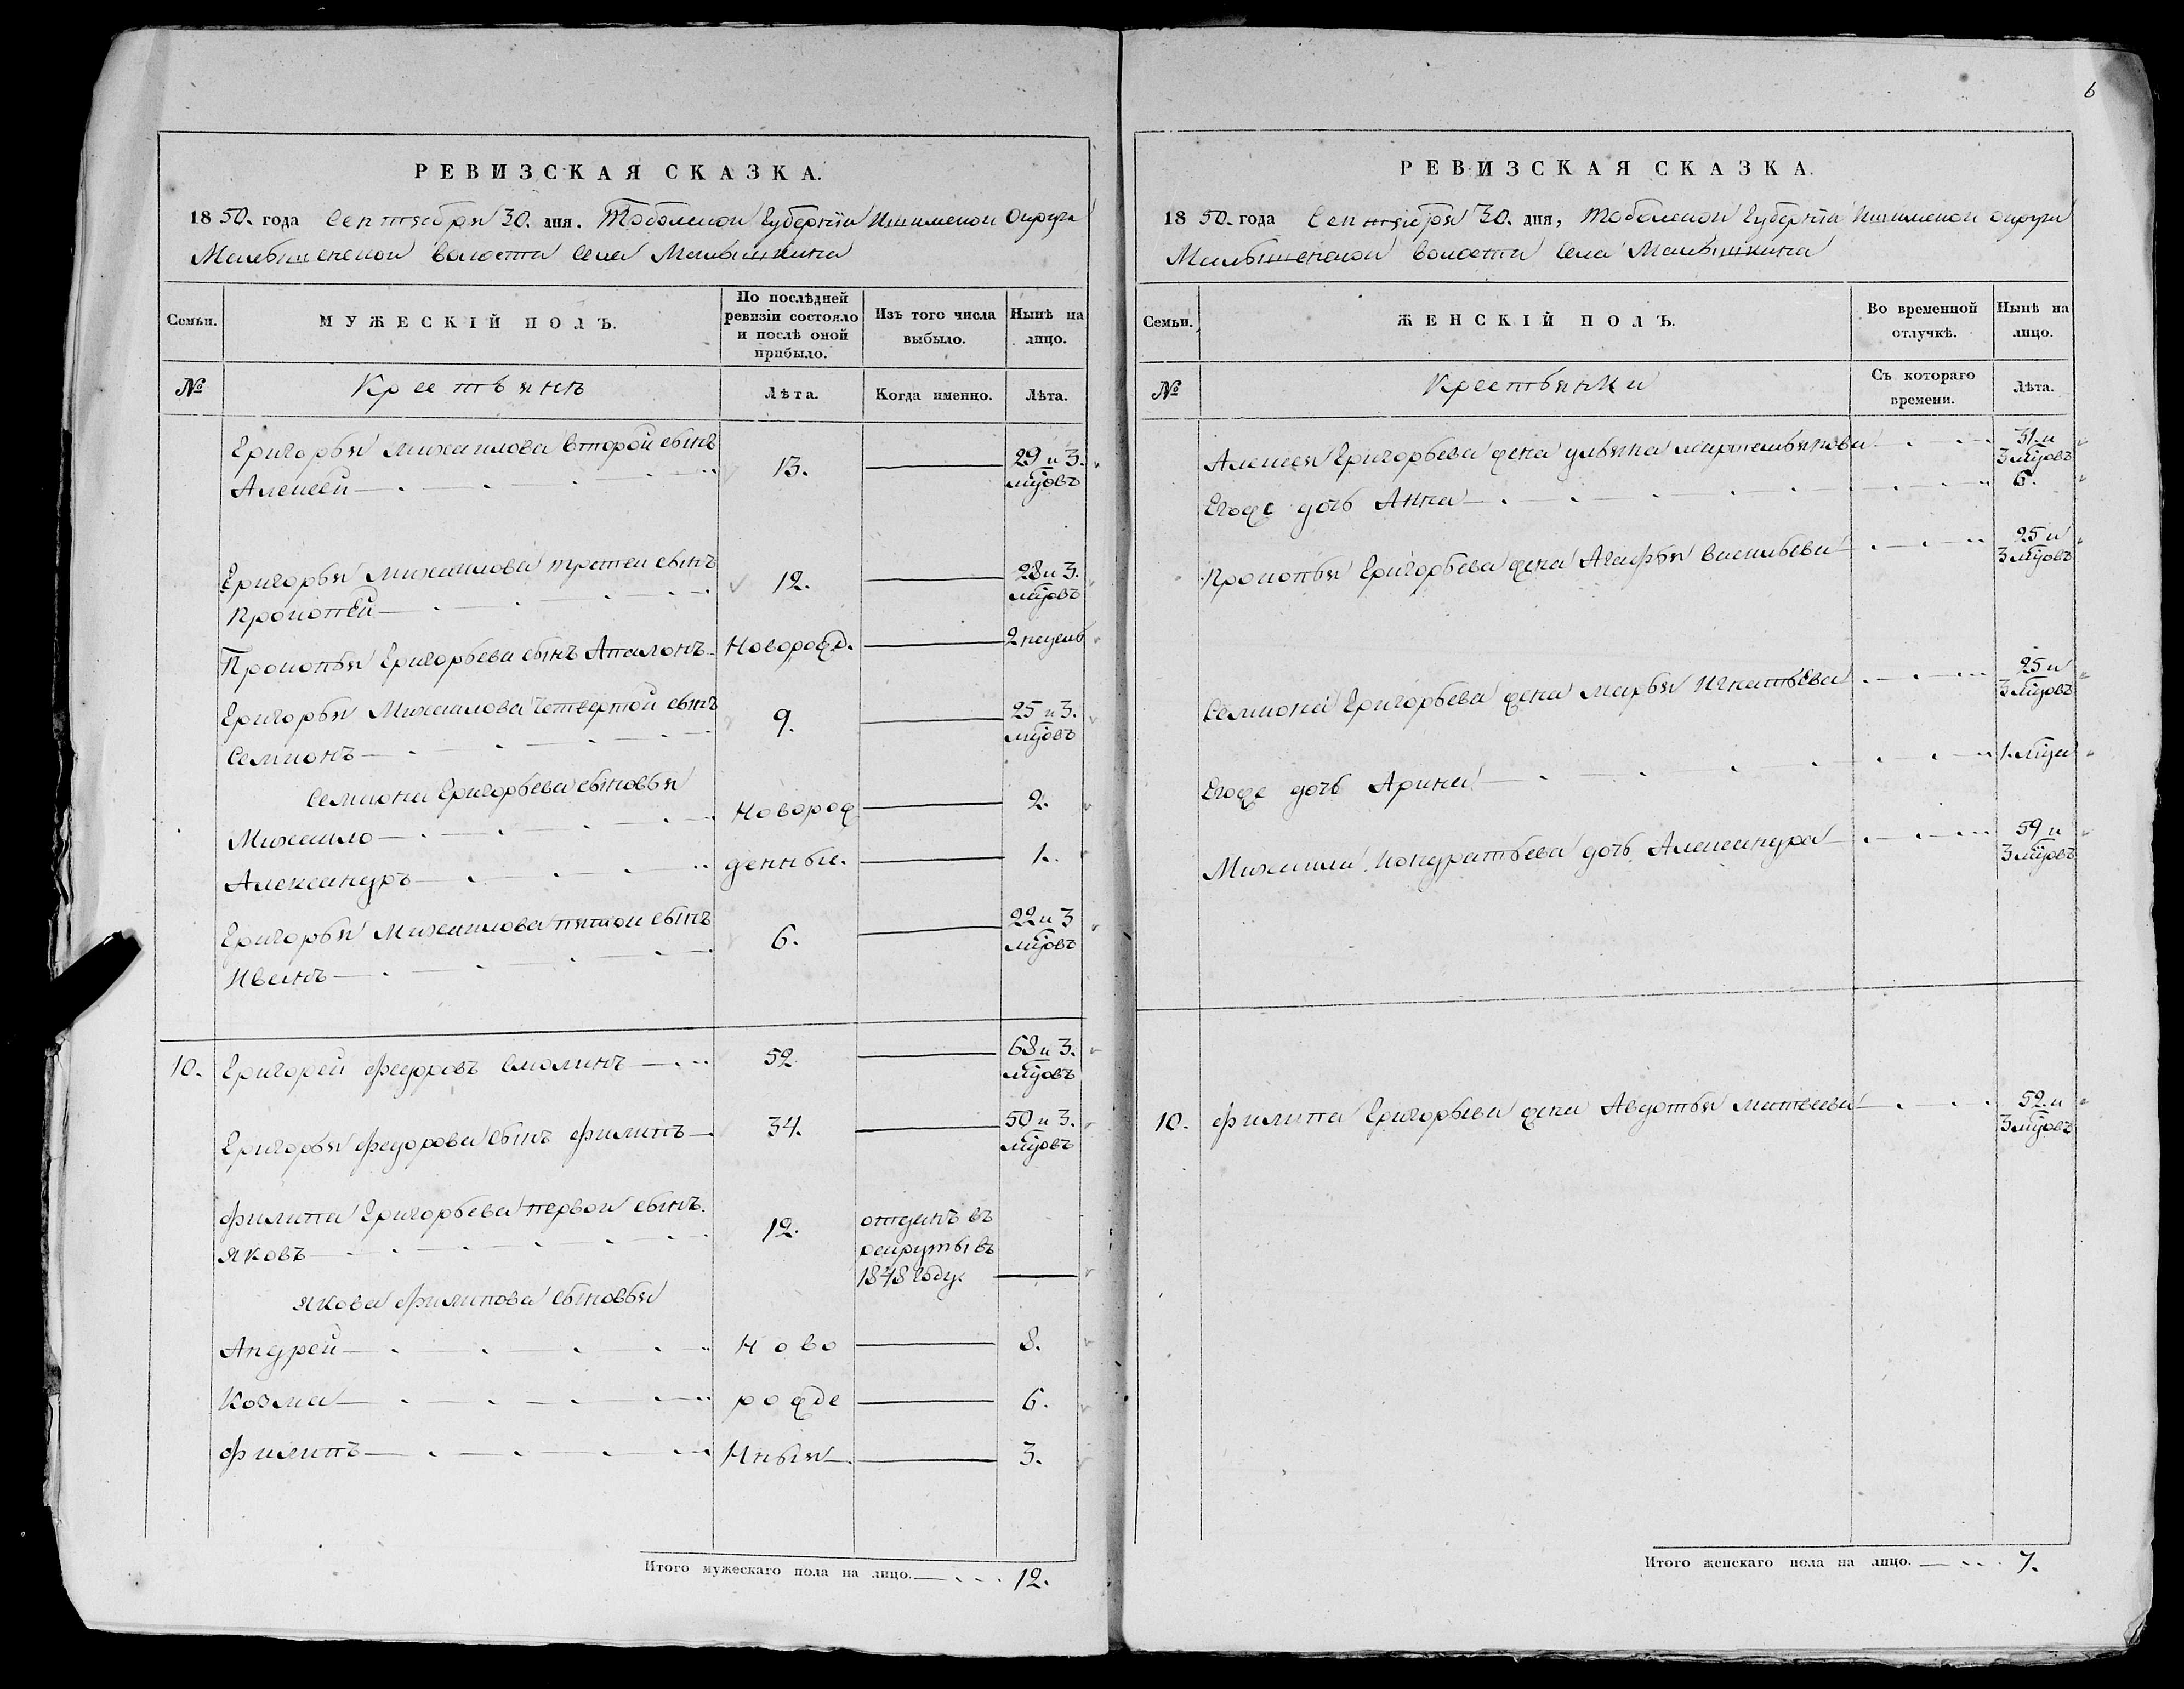 6
РЕВИЗСКАЯ СКАЗКА.
1850. года Сентября 30. дня. Тобольской Губерніи Ишимской Округи
Малышенской волости Села Малышкина
Семьи.
МУЖЕСКІЙ ПОЛЪ.
По послѣдней ревизіи состояло и послѣ оной прибыло.
Изъ того числа выбыло.
Нынѣ на лицо.
№
Крестьянъ
Лѣта.
Когда именно.
Лѣта.
Григорья Михайлова второй сынъ
Алексей 13. 29 и 3. мцовъ
Григорья Михайлова третей сынъ
Прокопей 12. 28 и 3. мцовъ
Прокопья Григорьева сынъ Апалонъ Новорожд. 2 недель
Григорья Михайлова четвертой сынъ
Семионъ 9. 25 и 3. мцовъ
Семиона Григорьева сыновья
Михайло Новорож 2.
Александръ денныи. 1.
Григорья Михайлова пятой сынъ
Иванъ 6. 22 и 3 мцовъ
10. Григорей Федоровъ Смолинъ 52. 68 и 3. мцовъ
Григорья Федорова сынъ Филипъ 34. 50 и 3. мцовъ
Филипа Григорьева первой сынъ.
Яковъ 12. отданъ въ
рекруты въ
1848 году.
Якова Филипова сыновья
Андрей Ново 8.
Козма рожде 6.
Филипъ нныя 3.
Итого мужескаго пола на лицо. 12.
РЕВИЗСКАЯ СКАЗКА.
1850. года Сентября 30. дня, Тобольской Губерніи Ишимской округи
Малышенской волости Села Малышкина
Семьи.
ЖЕНСКІЙ ПОЛЪ.
Во временной отлучкѣ.
Нынѣ на лицо.
№
Крестьянки
Съ котораго времени.
Лѣта.
Алексея Григорьева жена Ульяна Мартемьянова 31. и 3 мцовъ
Егоже дочь Анна 6.
Прокопья Григорьева жена Агафья Васильева 25 и 3 мцовъ
Семиона Григорьева жена Марья Игнатьева 25 и 3 мцовъ
Егоже дочь Арина 1. мца
Михаила Кондратьева дочь Александра 59 и 3 мцовъ
10. Филипа Григорьева жена Авдотья Матвеева 52. и 3 мцовъ
Итого женскаго пола на лицо. 7.